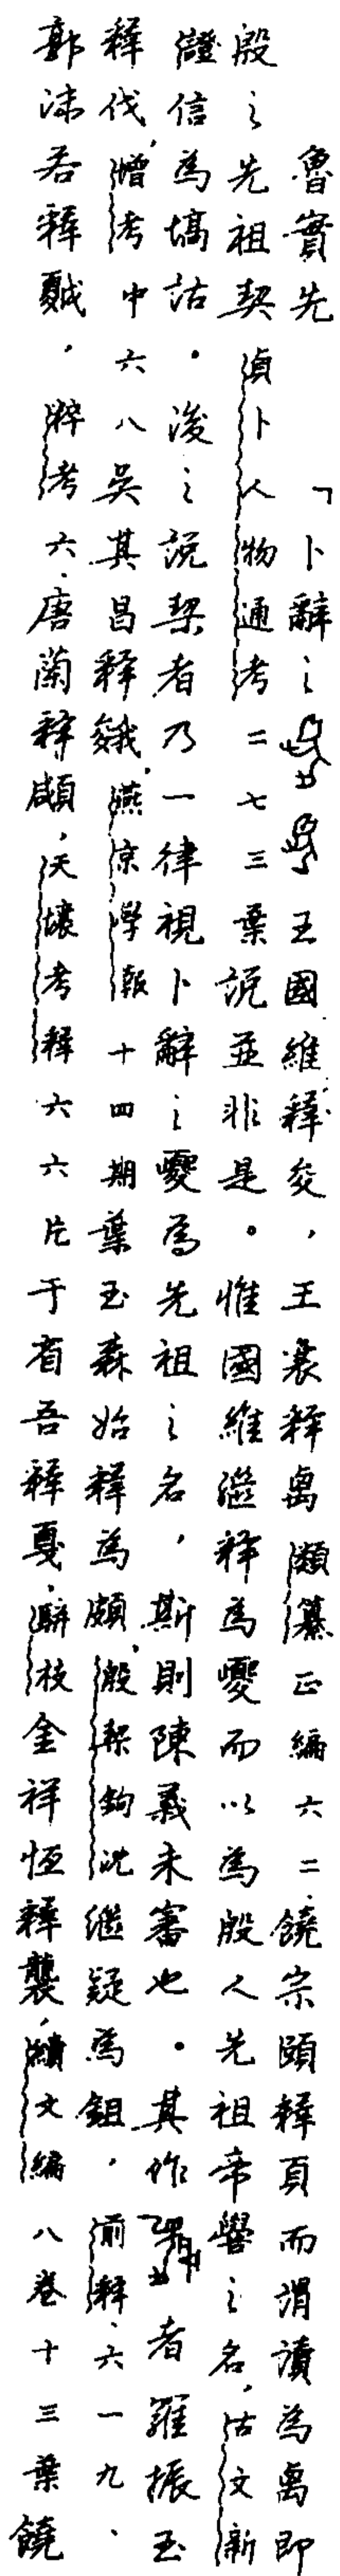 魯實先　「卜辭之王國維釋夋，王襄釋禼類纂正編六二、饒宗頤釋頁而謂讀為禼即
殷之先祖契貞卜人物通考二七三葉說並非是。惟國維繼釋為夒而以為殷人先祖帝嚳之名，古文新
證信為塙詁。後之說契者乃一律視卜辭之夒為先祖之名，斯則陳義未審也。其作者羅振玉
釋伐，增考中六八吳其昌釋䤬，燕京學報十四期葉玉森始釋為頗，殷契鉤沈繼疑為鉏，前釋、六一九、
郭沫若釋馘，粹考六、唐蘭釋䫡，天壤考釋六六片于省吾釋戛，駢枝金祥恆釋襲，續文編八卷十三葉饒